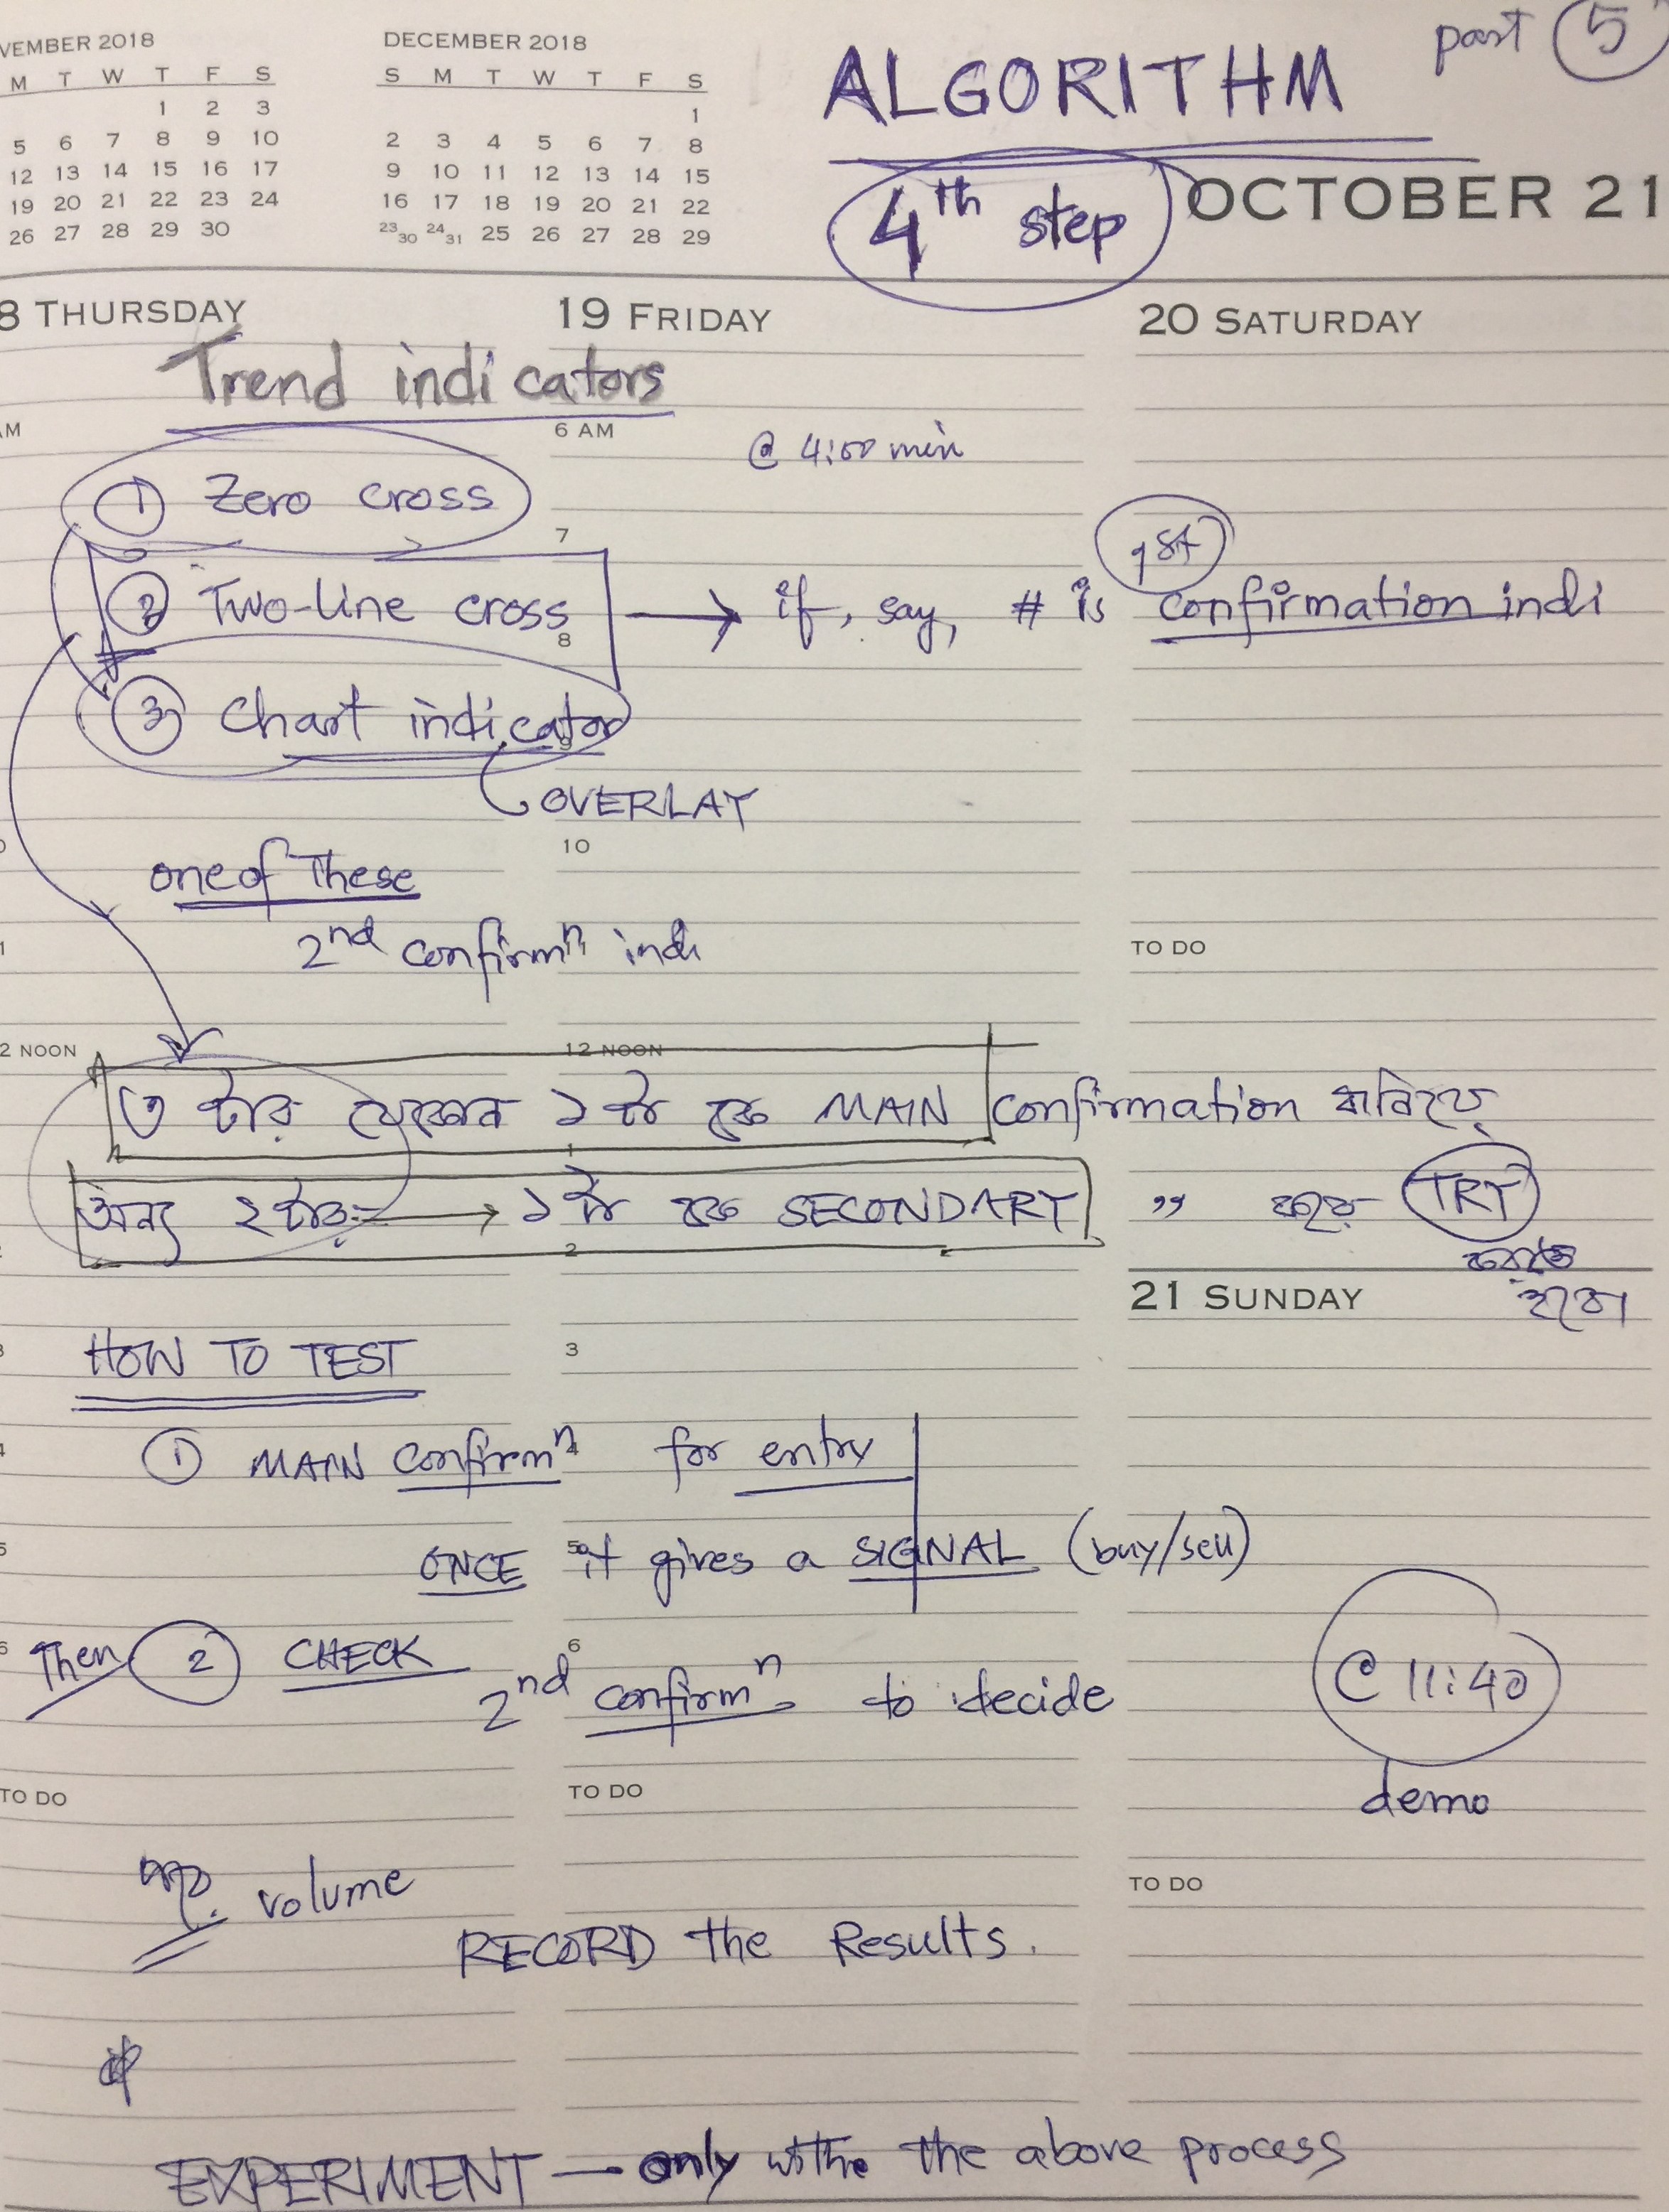 VEMBER 2018
M T W T F S
1 2 3
5 6 7 8 9 10
12 13 14 15 16 17
19 20 21 22 23 24
26 27 28 29 30
DECEMBER 2018
S M T W T F S
1
2 3 4 5 6 7 8
9 10 11 12 13 14 15
16 17 18 19 20 21 22
23 30 24 31 25 26 27 28 29
part 5
ALGORITHM
4th step
OCTOBER 21
8 THURSDAY
19 FRIDAY
20 SATURDAY
Trend indicators
AM
6 AM
@ 4:00 min
① Zero cross
7
1st
② Two-line cross → if, say, # is confirmation indi
8
③ Chart indicator
9
OVERLAY
10
one of These
2nd confirmn indi
TO DO
2 NOON
12 NOON
৩ টার ১ টা হচ্ছে MAIN confirmation
1
অন্য ২ টার → ১ টা হচ্ছে SECONDARY " TRY
2
করতে
হবে।
21 SUNDAY
HOW TO TEST
3
① MAIN confirmn for entry
5
ONCE it gives a SIGNAL (buy/sell)
6
Then ② CHECK 2nd confirmn to decide
@ 11:40
demo
TO DO
TO DO
TO DO
volume
RECORD the Results.
EXPERIMENT — only the above process